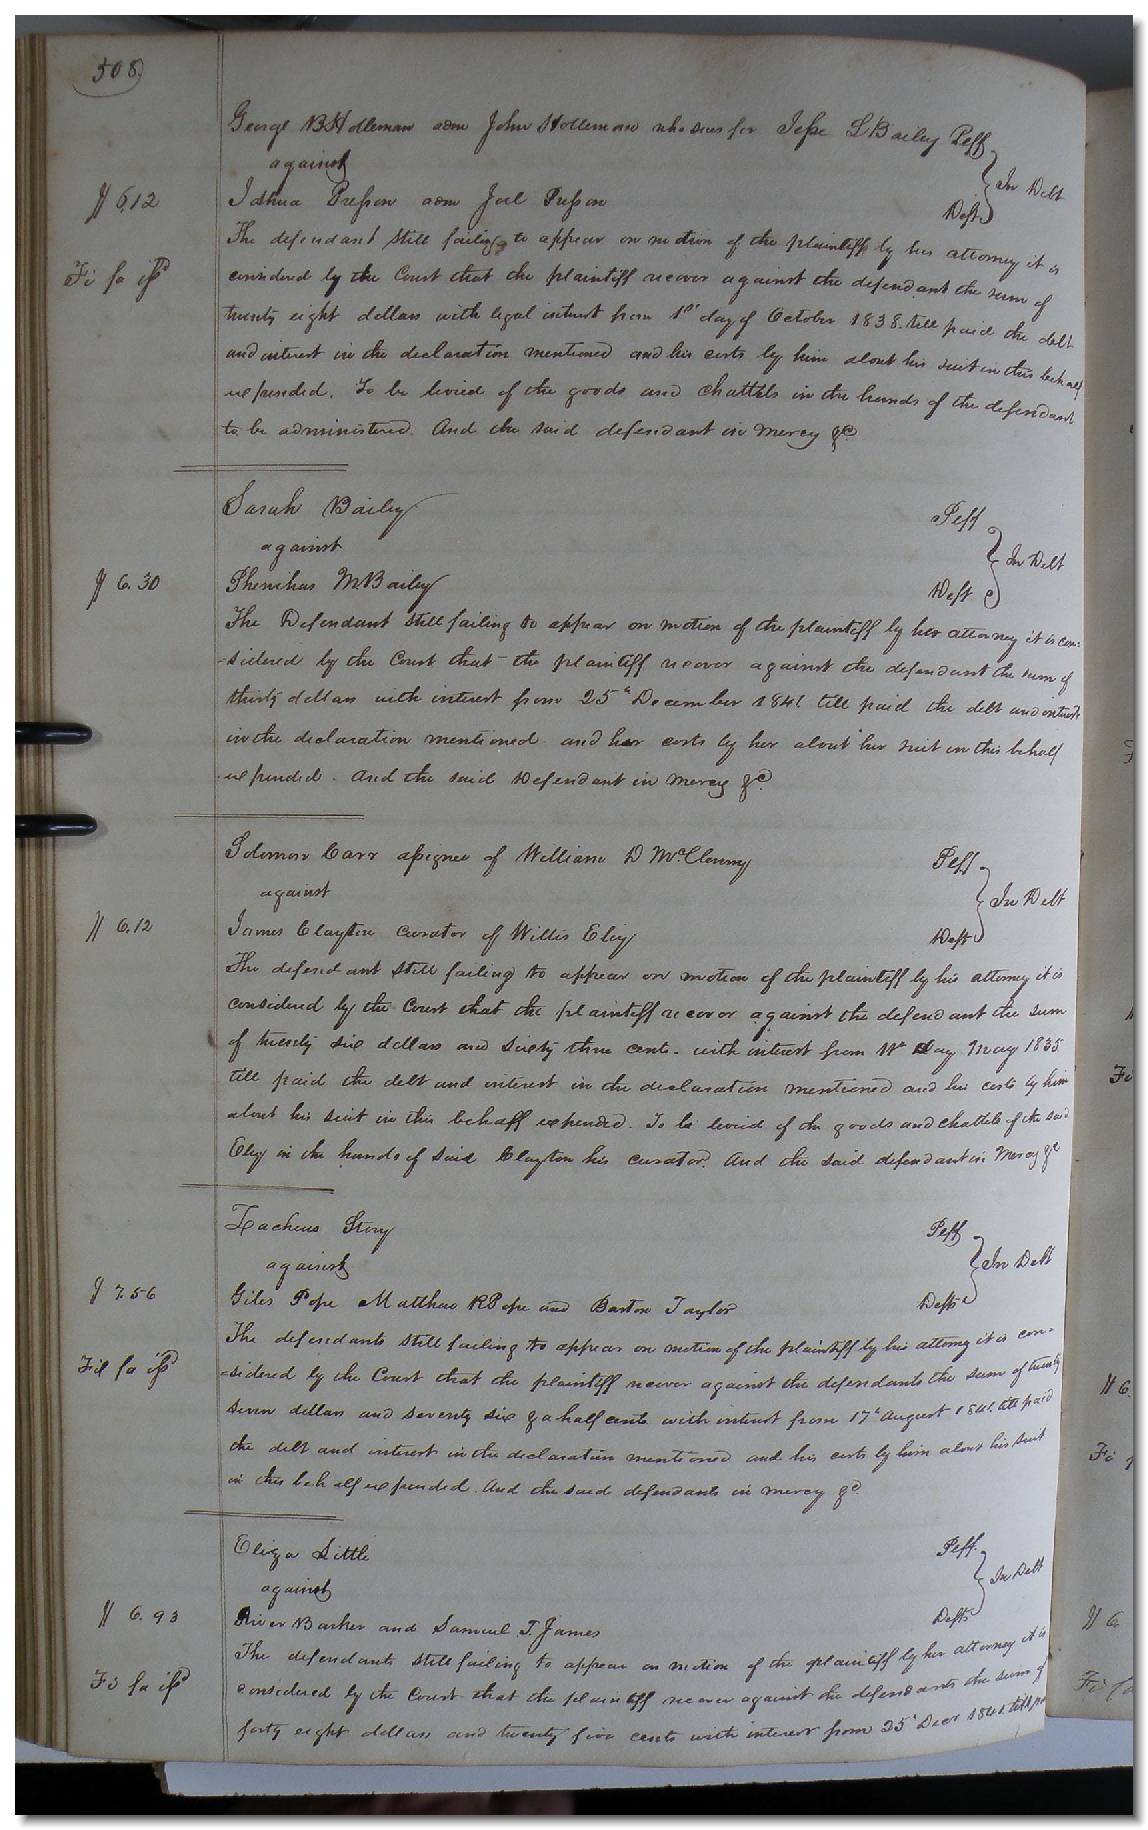 508
George B Holleman adm John Holleman who sues for Jesse L Bailey Peff
against
In Debt
$ 6.12
Joshua Presson adm Joel Presson
Deft
The defendant still failing to appear on motion of the plaintiff by his attorney it is
Fi fa ifsd
considered by the Court that the plaintiff recover against the defendant the sum of
twenty eight dollars with legal interest from 1st day of October 1838. till paid the debt
and interest in the declaration mentioned and his costs by him about his suit in this behalf
expended. To be levied of the goods and chattels in the hands of the defendant
to be administered. And the said defendant in Mercy &c
Sarah Bailey
Peff
against
In Debt
$ 6.30
Phenihas M. Bailey
Deft
The Defendant still failing to appear on motion of the plaintiff by her attorney it is con=
=sidered by the Court that the plaintiff recover against the defendant the sum of
thirty dollars with interest from 25th December 1841 till paid the debt and interest
in the declaration mentioned and her costs by her about her suit in this behalf
expended. And the said Defendant in Mercy &c.
Solomon Carr assignee of William D McClenny
Peff
against
In Debt
$ 6.12
James Clayton curator of Willis Eley
Deft
The defendant still failing to appear on motion of the plaintiff by his attorney it is
considered by the Court that the plaintiff recover against the defendant the sum
of twenty six dollars and sixty three cents. with interest from day May 1835
till paid the debt and interest in the declaration mentioned and his costs by him
about his suit in this behalf expended. To be levied of the goods and chattels of the said
Eley in the hands of said Clayton his curator. And the said defendant in Mercy &c
Zacheus Story
Peff
against
In Debt
$ 7.56
Giles Pope Matthew R Pope and Barton Taylor
Defts
The defendants still failing to appear on motion of the plaintiff by his attorney it is con=
Fi fa ifsd
=sidered by the Court that the plaintiff recover against the defendants the sum of twenty
seven dollars and seventy six & a half cents with interest from 17th August 1841. till paid
the debt and interest in the declaration mentioned and his costs by him about his suit
in this behalf expended. And the said defendants in mercy &c.
Eliza Little
Peff.
against
In Debt
$ 6.93
River Barker and Samuel T. James
Defts
The defendants still failing to appear on motion of the plaintiff by her attorney it is
Fi fa ifsd
considered by the Court that the plaintiff recover against the defendants the sum of
forty eight dollars and twenty five cents with interest from 25th Decr 1841. till pa